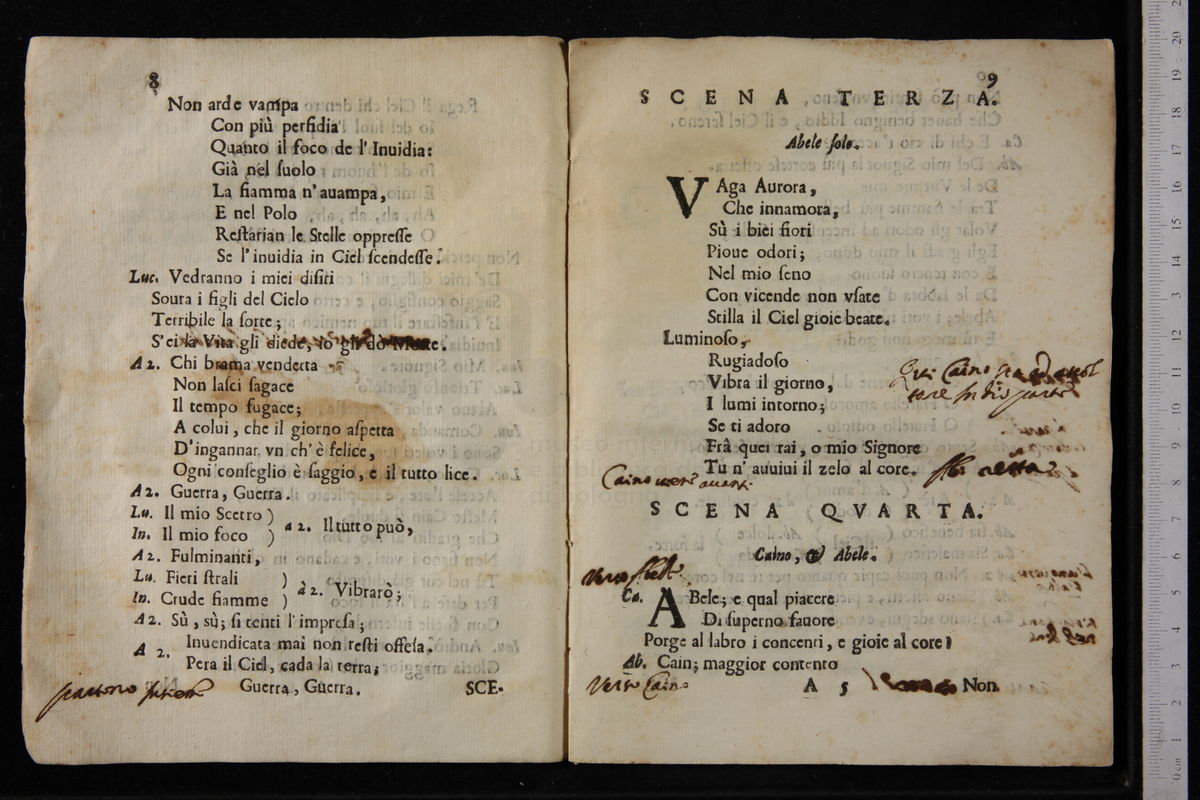 8
Non arde vampa
Con più perfidia
Quanto il foco de l'Inuidia:
Già nel ſuolo
La fiamma n'auampa,
E nel Polo
Reſtarian le Stelle oppreſſe
Se l'inuidia in Ciel ſcendeſſe.
Luc. Vedranno i miei diſiti
Soura i figli del Cielo
Terribile la ſorte;
S'ei la Vita gli diede, io gli dò Morte.
A 2. Chi brama vendetta
Non laſci ſagace
Il tempo fugace;
A colui, che il giorno aſpetta
D'ingannar vn ch'è felice,
Ogni conſeglio è ſaggio, e il tutto lice.
A 2. Guerra, Guerra.
Lu. Il mio Scetro )
a 2. Il tutto può,
In. Il mio foco )
A 2. Fulminanti,
Lu. Fieri ſtrali )
à 2. Vibrarò;
In. Crude fiamme )
A 2. Sù, sù; ſi tenti l'impreſa;
A 2. Inuendicata mai non reſti offeſa.
Pera il Ciel, cada la terra;
Guerra, Guerra.
SCE-
9
SCENA TERZA.
Abele ſolo.
VAga Aurora,
Che innamora,
Sù i biei fiori
Pioue odori;
Nel mio ſeno
Con vicende non vſate
Stilla il Ciel gioie beate.
Luminoſo,
Rugiadoſo
Vibra il giorno,
I lumi intorno;
Se ti adoro
Frà quei rai, o mio Signore
Tu n'auuiui il zelo al core.
Qui Caino
Caino
SCENA QVARTA.
Caino, & Abele.
verso
Ca. ABele; e qual piacere
Di ſuperno fauore
Porge al labro i concenti, e gioie al core?
Ab. Cain; maggior contento
verso Caino
A 5
Non
museo
biblioteca